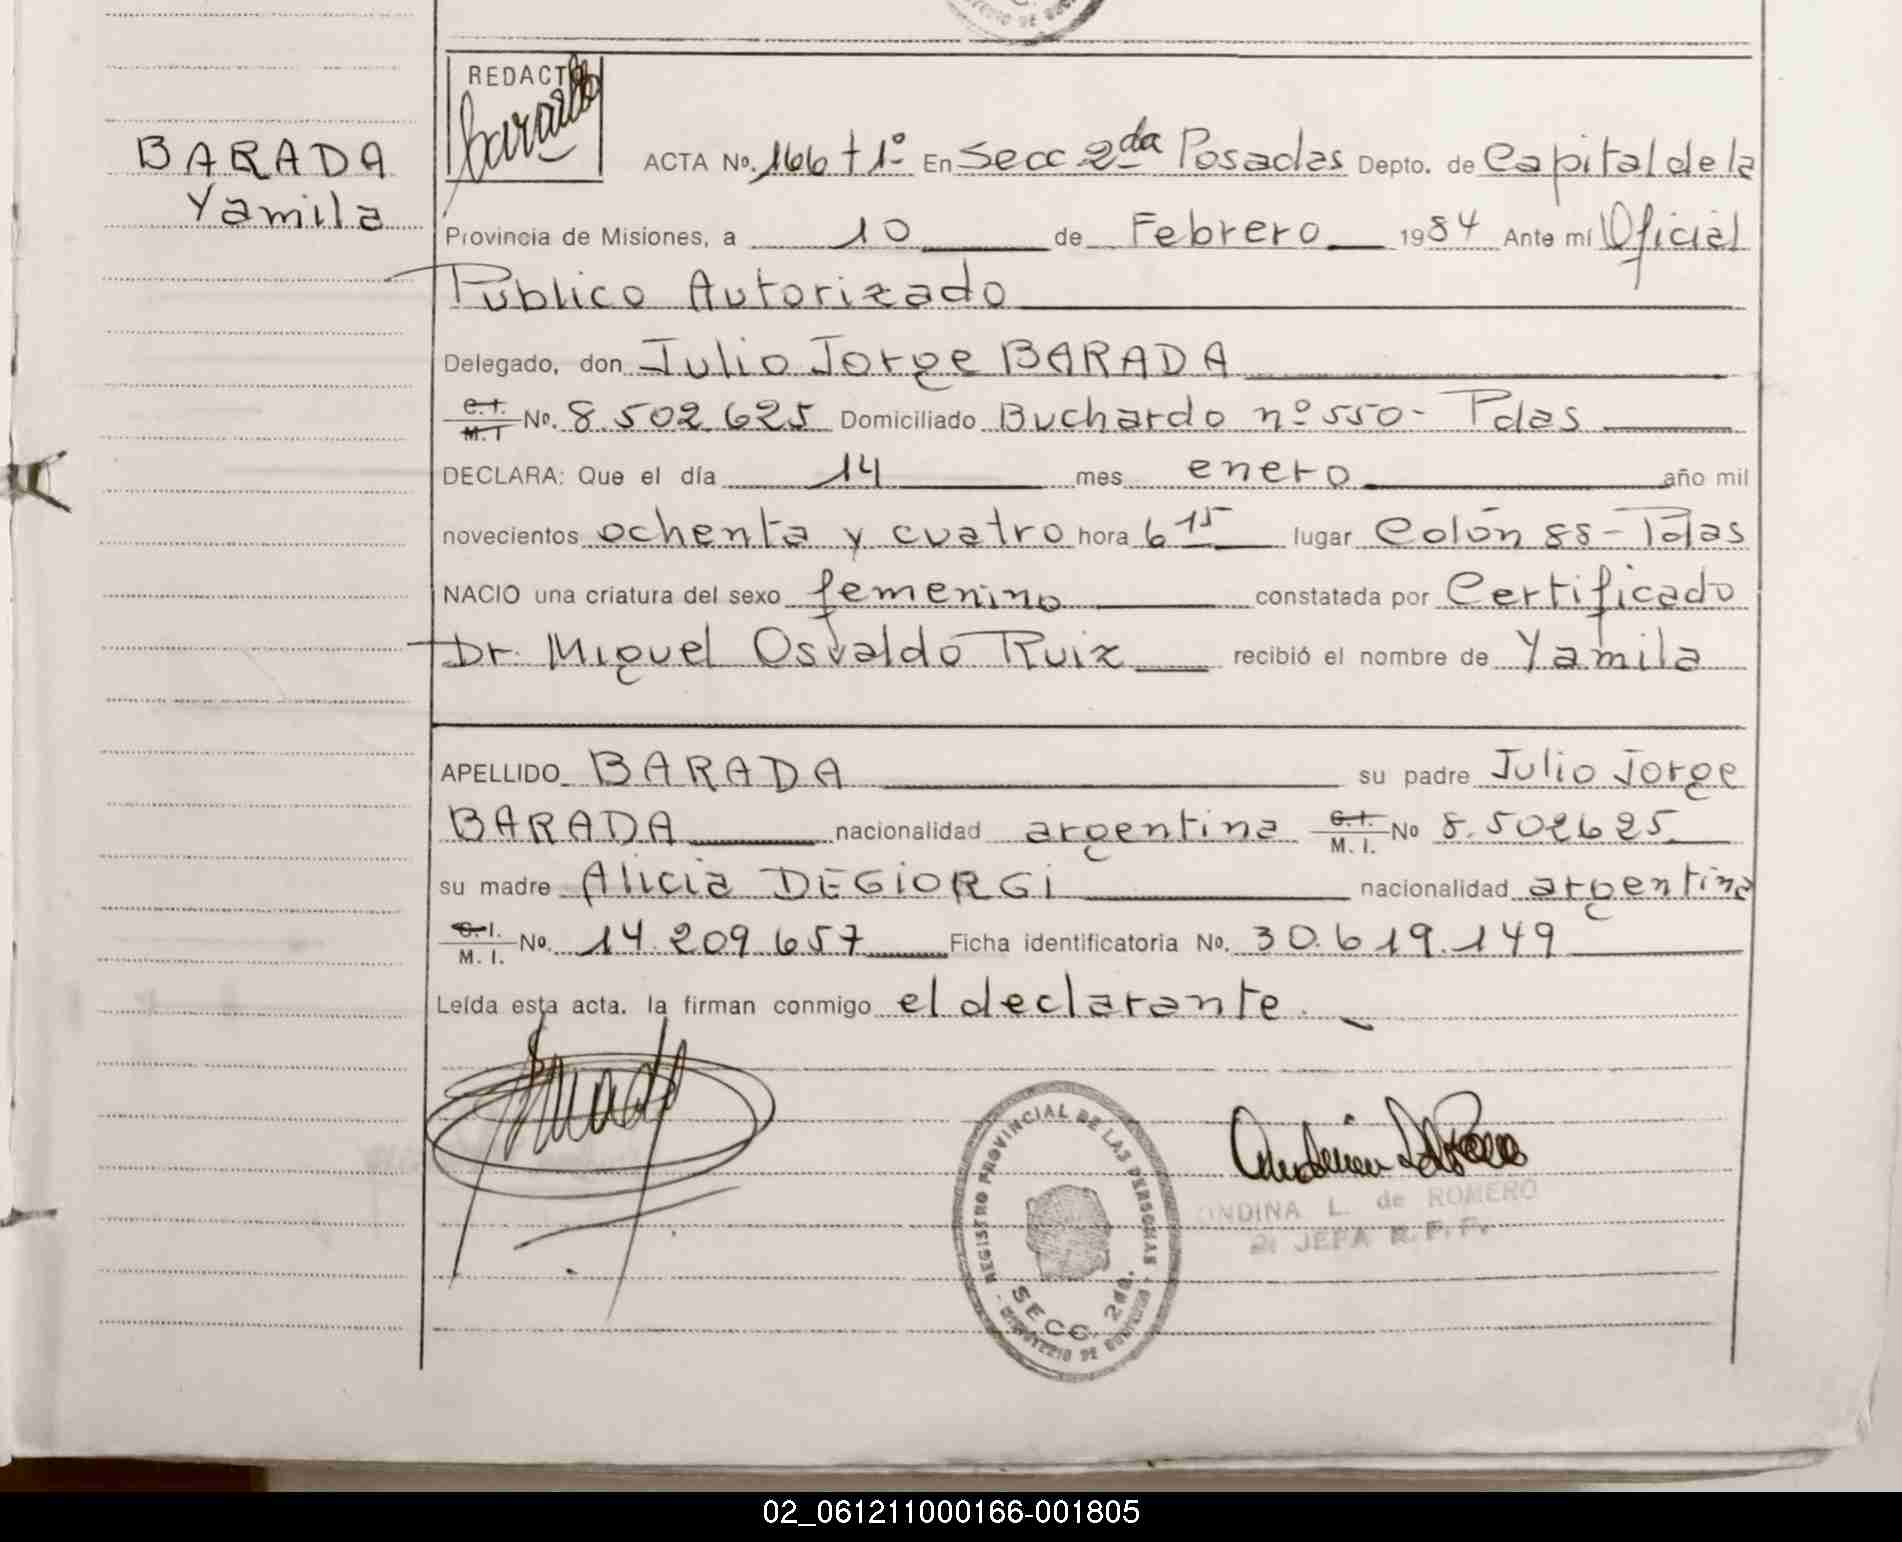 BARADA
Yamila
REDACT
ACTA No. 166 t 1º En Secc 2da Posadas Depto. de Capital de la
Provincia de Misiones, a 10 de Febrero 1984 Ante mí Oficial
Público Autorizado
Delegado, don Julio Jorge BARADA
C.I. M.I No. 8.502.625 Domiciliado Buchardo nº 550- Pdas
DECLARA: Que el día 14 mes enero año mil
novecientos ochenta y cuatro hora 6 15 lugar Colón 88 - Pdas
NACIO una criatura del sexo femenino constatada por Certificado
Dr. Miguel Osvaldo Ruiz recibió el nombre de Yamila
APELLIDO BARADA su padre Julio Jorge
BARADA nacionalidad argentina C.I. M. I. No 8.502625
su madre Alicia DEGIORGI nacionalidad argentina
C.I. M. I. No. 14.209.657 Ficha identificatoria No. 30.619.149
Leída esta acta. la firman conmigo el declarante.
REGISTRO PROVINCIAL DE LAS PERSONAS
SECC. 2da.
ONDINA L. de ROMERO
JEFA R.P.P.
02_061211000166-001805